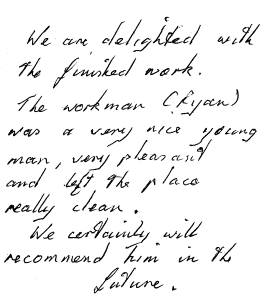 We are delighted with
the finished work.
The workman (Ryan)
was a very nice young
man, very pleasant
and left the place
really clean.
We certainly will
recommend him in the
future.